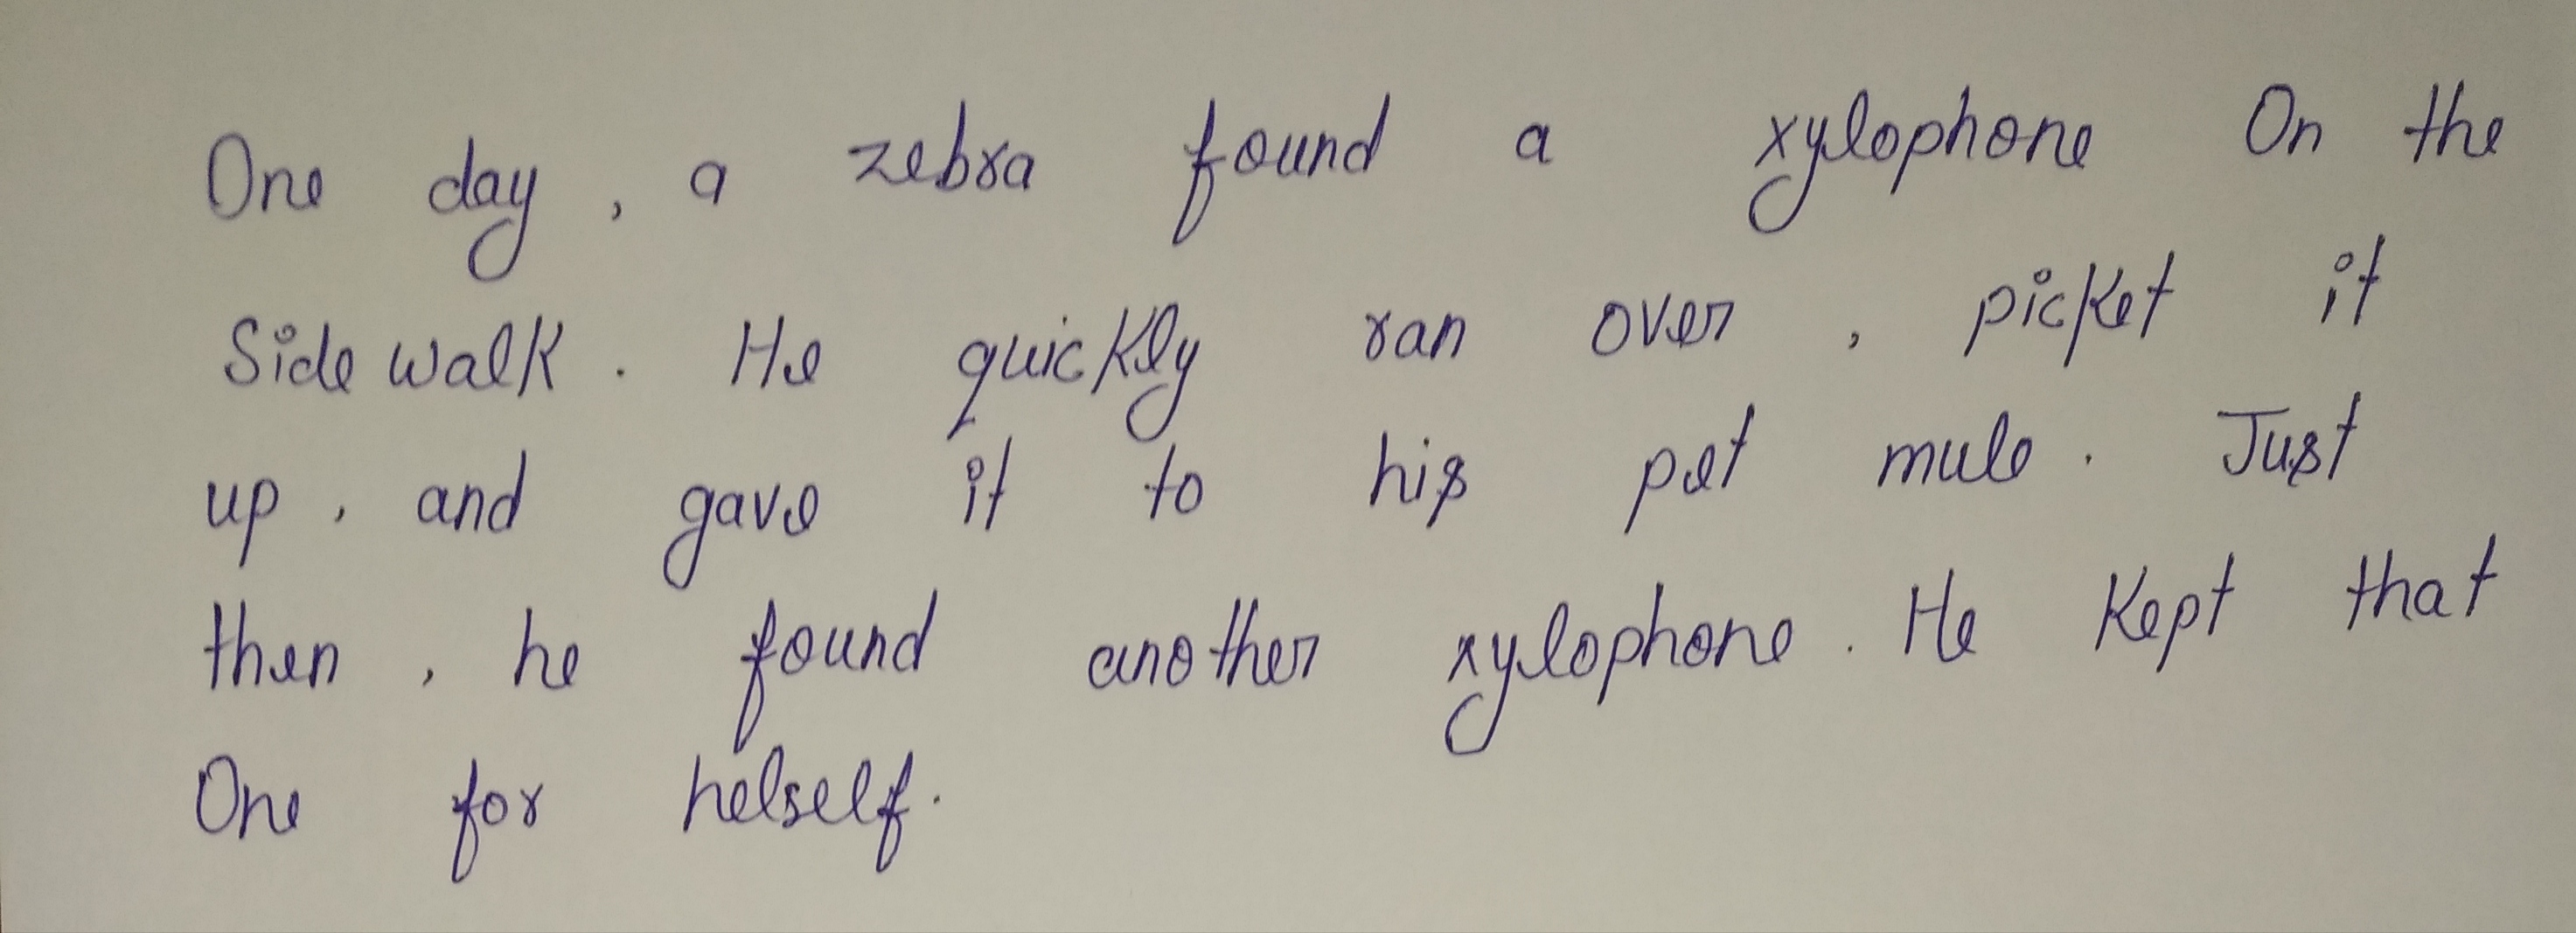 One day, a zebra found a xylophone On the
Side walk. He quickly ran over, picket it
up, and gave it to his pet mule. Just
then, he found another xylophone. He Kept that
One for helself.